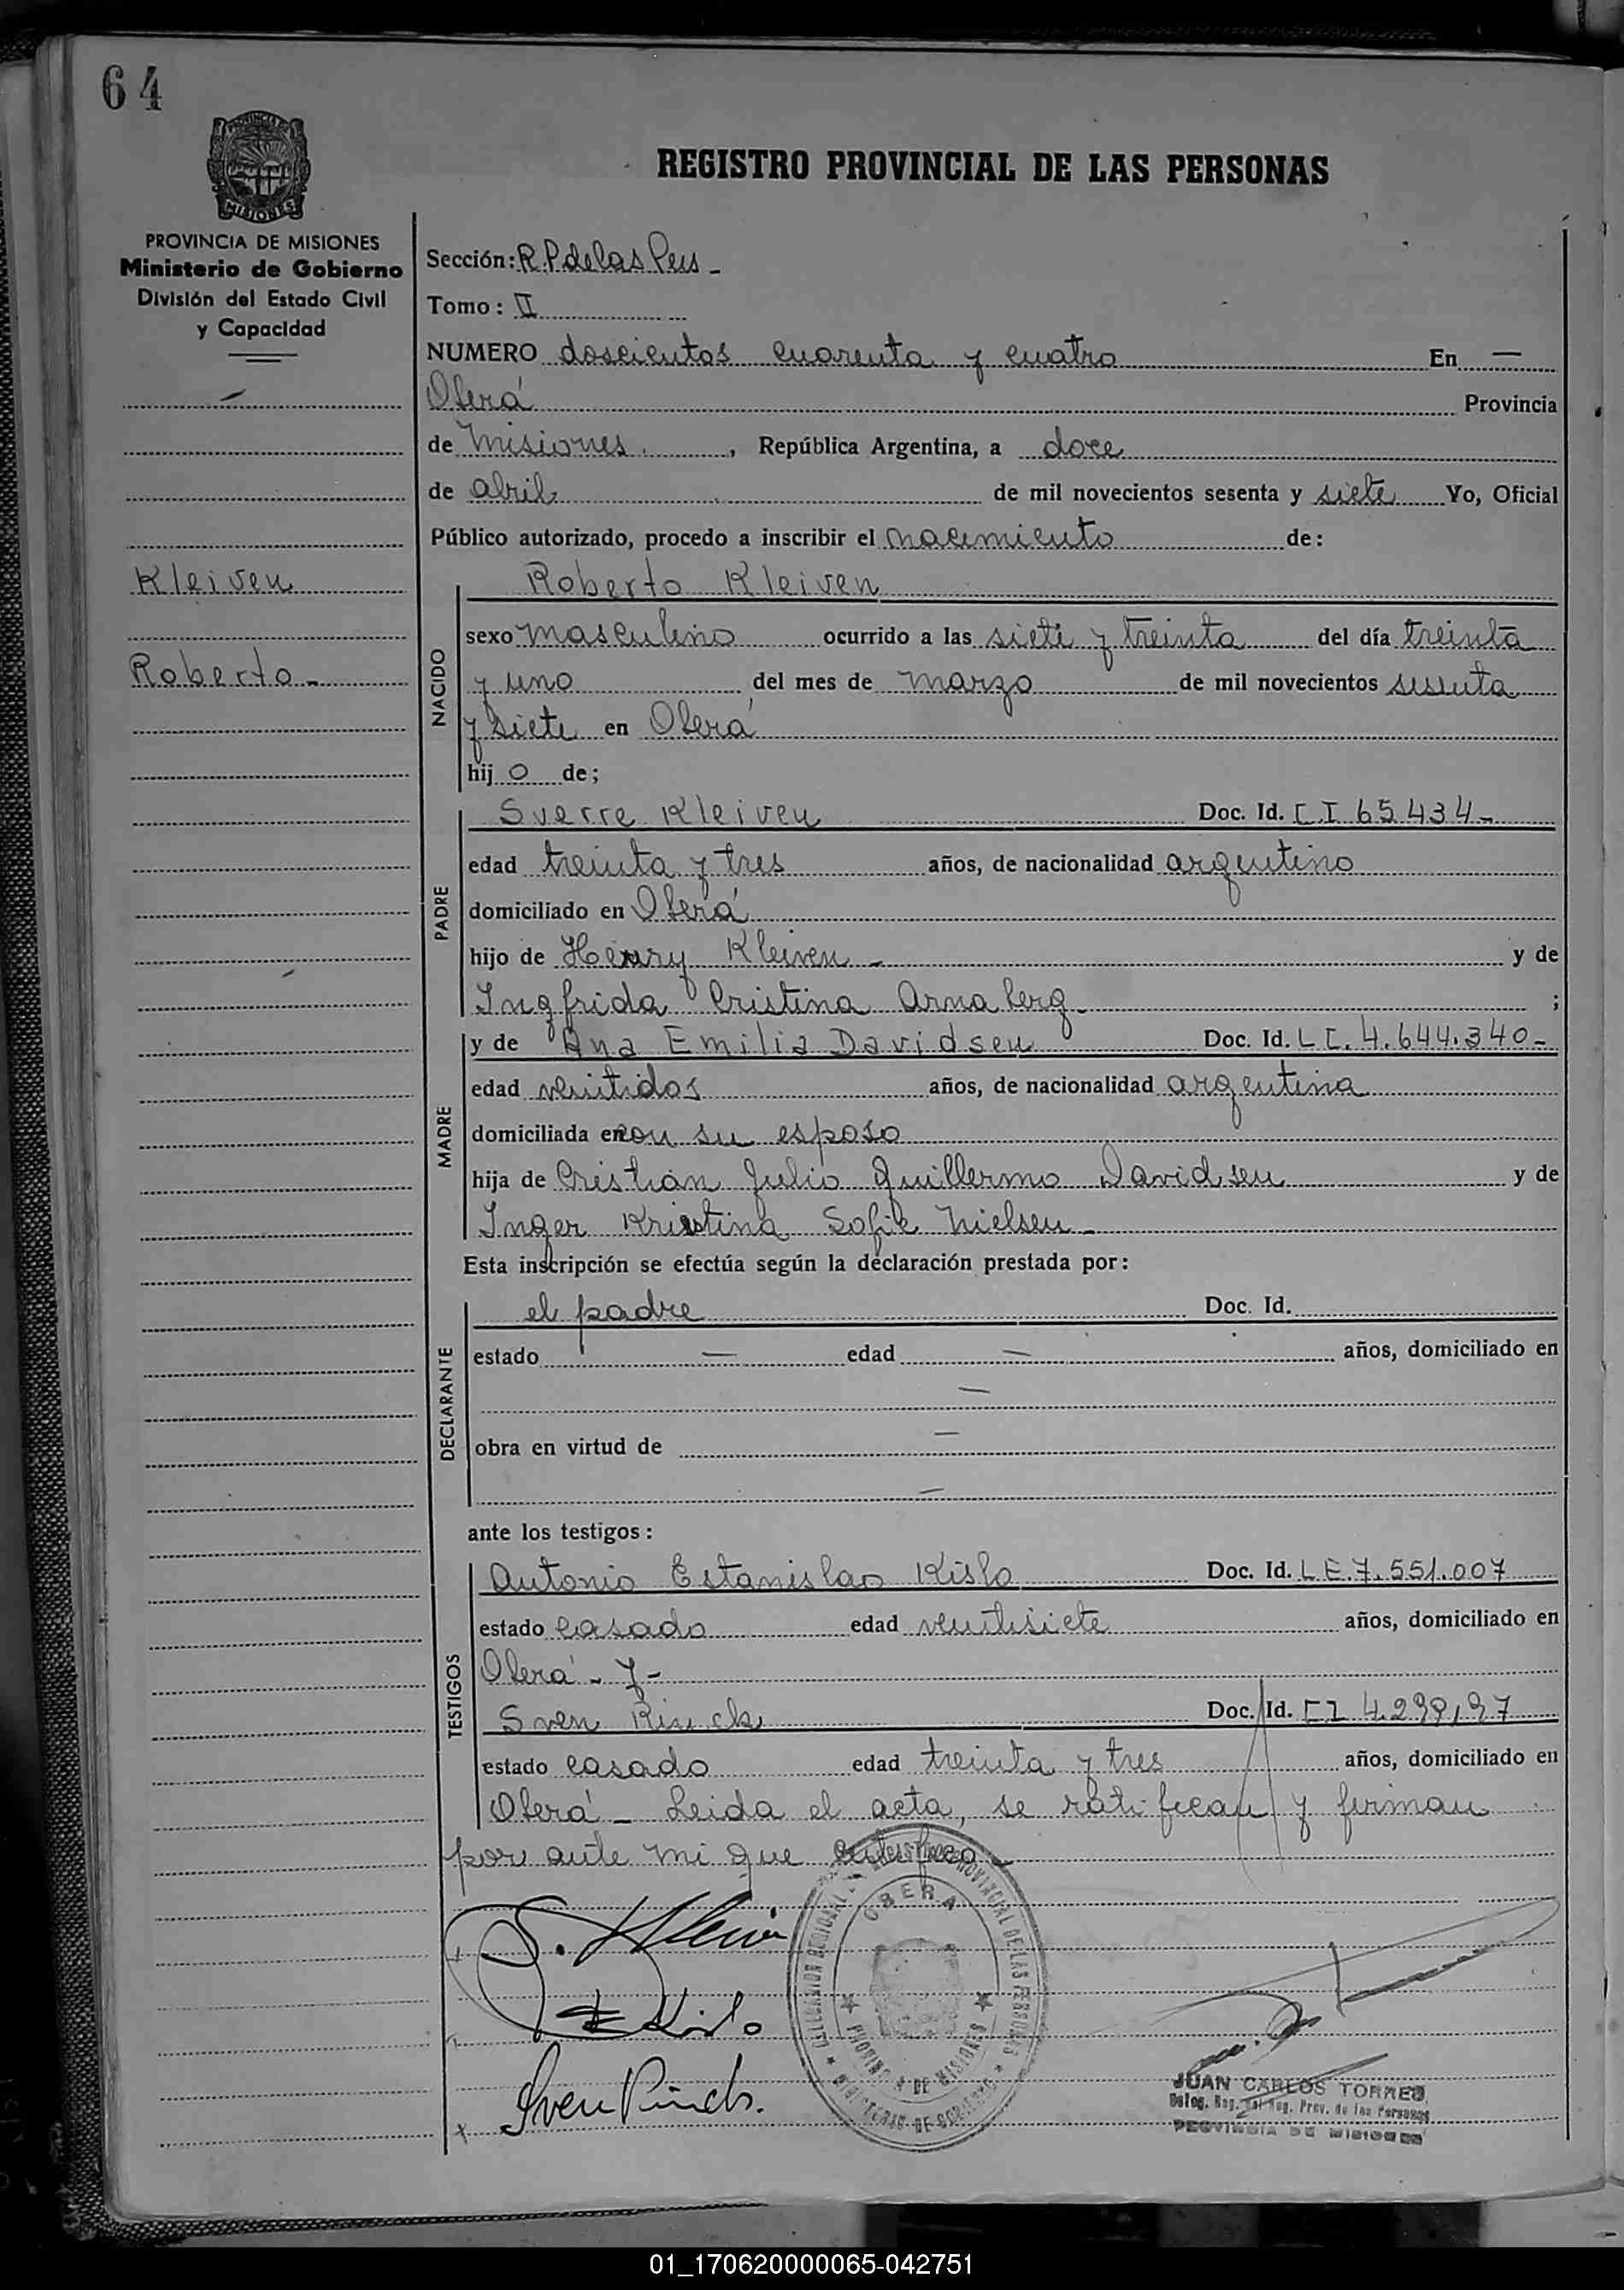 64
PROVINCIA DE MISIONES
MISIONES
PROVINCIA DE MISIONES
Ministerio de Gobierno
División del Estado Civil
y Capacidad
Kleiven
Roberto -
REGISTRO PROVINCIAL DE LAS PERSONAS
Sección: R.P. de las Pers -
Tomo: II
NUMERO doscientos cuarenta y cuatro En —
Oberá Provincia
de Misiones, República Argentina, a doce
de abril de mil novecientos sesenta y siete Yo, Oficial
Público autorizado, procedo a inscribir el nacimiento de:
NACIDO
Roberto Kleiven
sexo masculino ocurrido a las siete y treinta del día treinta
y uno del mes de marzo de mil novecientos sesenta
y siete en Oberá
hij o de;
PADRE
Sverre Kleiven Doc. Id. C.I 65434 -
edad treinta y tres años, de nacionalidad argentino
domiciliado en Oberá
hijo de Henry Kleiven - y de
Ingfrida Cristina Arnaberg ;
MADRE
y de Ana Emilia Davidsen Doc. Id. L C. 4.644.340 -
edad veintidos años, de nacionalidad argentina
domiciliada en con su esposo
hija de Cristian Julio Guillermo Davidsen y de
Inger Kristina Sofie Nielsen -
Esta inscripción se efectúa según la declaración prestada por:
DECLARANTE
el padre Doc. Id.
estado — edad — años, domiciliado en
—
obra en virtud de —
—
ante los testigos:
TESTIGOS
Antonio Estanislao Kislo Doc. Id. L E. 7.551.007
estado casado edad veintisiete años, domiciliado en
Oberá - y -
Sven Rinck Doc. Id. CI
estado casado edad treinta y tres años, domiciliado en
Oberá - Leida el acta, se ratifican y firman
por ante mi que certifico -
OBERA
PROVINCIA DE MISIONES
REGISTRO PROVINCIAL DE LAS PERSONAS
MINISTERIO DE GOBIERNO
Sven Rinck.
JUAN CARLOS TORRES
PROVINCIA DE MISIONES
01_170620000065-042751